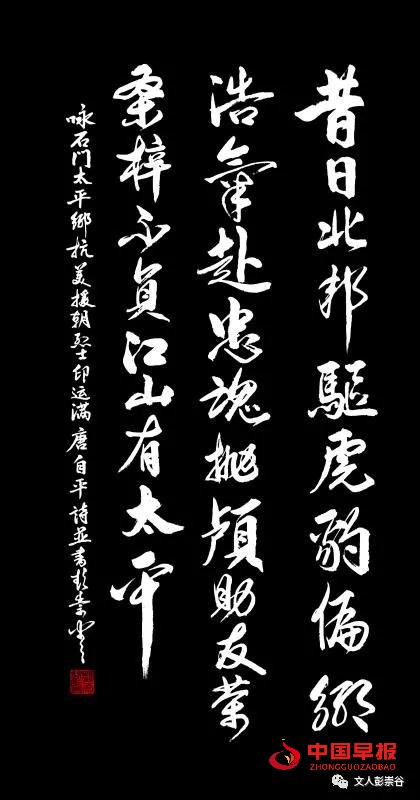 昔日北邦驅虎豹偏鄉
浩氣赴忠魂拋顱助友榮
桑梓不負江山有太平
咏石门太平鄉抗美援朝烈士印运满唐自平詩並書彭崇谷
中国早报
ZHONGGUOZAOBAO
文人彭崇谷